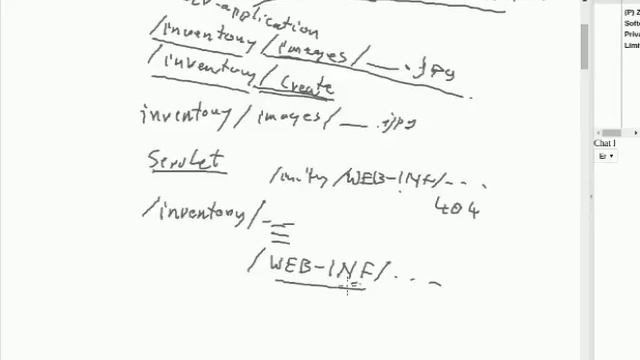 -application
/inventory/images/___.jpg
/inventory/create
inventory/images/___.jpg
Servlet
/WEB-INF/...
404
/inventory/
/WEB-INF/...
(P) Z
Softw
Pari
Limi
Chat I